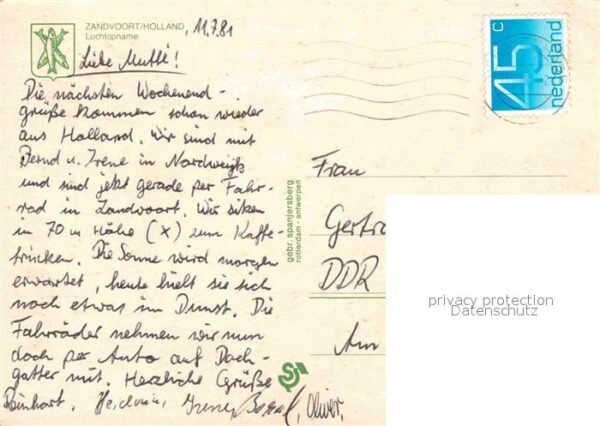 ZANDVOORT/HOLLAND, 11.7.81
Luchtopname
Liebe Mutti!
Die nächsten Wochenend-
grüße kommen schon wieder
aus Holland. Wir sind mit
Bernd u. Irene in Nordweigk
und sind jetzt gerade per Fahr-
rad in Zandvoort. Wir sitzen
in 70 m Höhe (X) zum Kaffe-
trinken. Die Sonne wird morgen
erwartet, heute hielt sie sich
noch etwas im Dunst. Die
Fahrräder nehmen wir nun
doch per Auto auf Dach-
gatter mit. Herzliche Grüße
Reinhart, Irene, Bernd, Oliver.
gebr. spanjersberg
rotterdam - antwerpen
45 c
nederland
Frau
Gertra
DDR
Am
privacy protection
Datenschutz